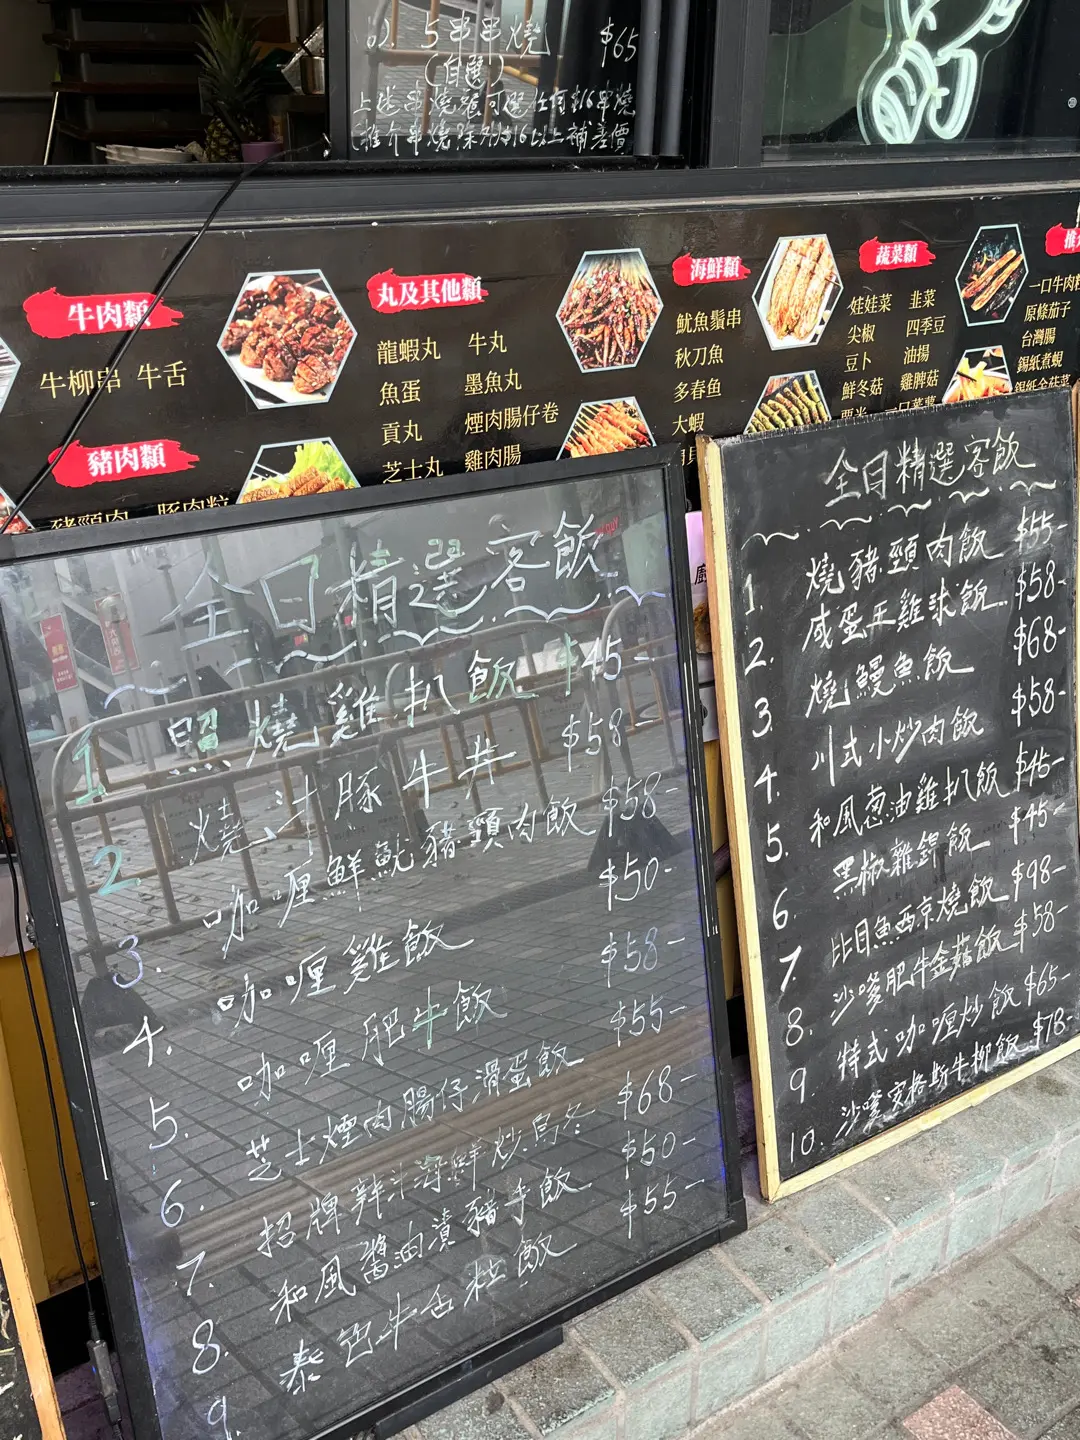 5串串燒 $65
(自選)
上述串燒飯可選任何$16串燒
推介串燒除外$16以上補差價
牛肉類
牛柳串 牛舌
豬肉類
豬頸肉 豚肉粒
丸及其他類
龍蝦丸 牛丸
魚蛋 墨魚丸
貢丸 煙肉腸仔卷
芝士丸 雞肉腸
海鮮類
魷魚鬚串
秋刀魚
多春魚
大蝦
蔬菜類
娃娃菜 韭菜
尖椒 四季豆
豆卜 油揚
鮮冬菇 雞脾菇
粟米
一口牛肉粒
原條茄子
台灣腸
錫紙煮蜆
錫紙金菇菜
全日精選客飯
1 照燒雞扒飯 $45-
2. 燒汁豚牛丼 $58-
3. 咖喱鮮魷豬頸肉飯 $58-
4. 咖喱雞飯 $50-
5. 咖喱肥牛飯 $58-
6. 芝士煙肉腸仔滑蛋飯 $55-
7. 招牌辣汁海鮮炒烏冬 $68-
8. 和風醬油漬豬手飯 $50-
9. 泰色牛舌粒飯 $55-
全日精選客飯
1. 燒豬頸肉飯 $55-
2. 咸蛋王雞球飯 $58-
3. 燒鰻魚飯 $68-
4. 川式小炒肉飯 $58-
5. 和風葱油雞扒飯 $45-
6. 黑椒雜錦飯 $45-
7. 比目魚西京燒飯 $98-
8. 沙嗲肥牛金菇飯 $58-
9. 特式咖喱炒飯 $65-
10. 沙嗲安格斯牛柳飯 $78-